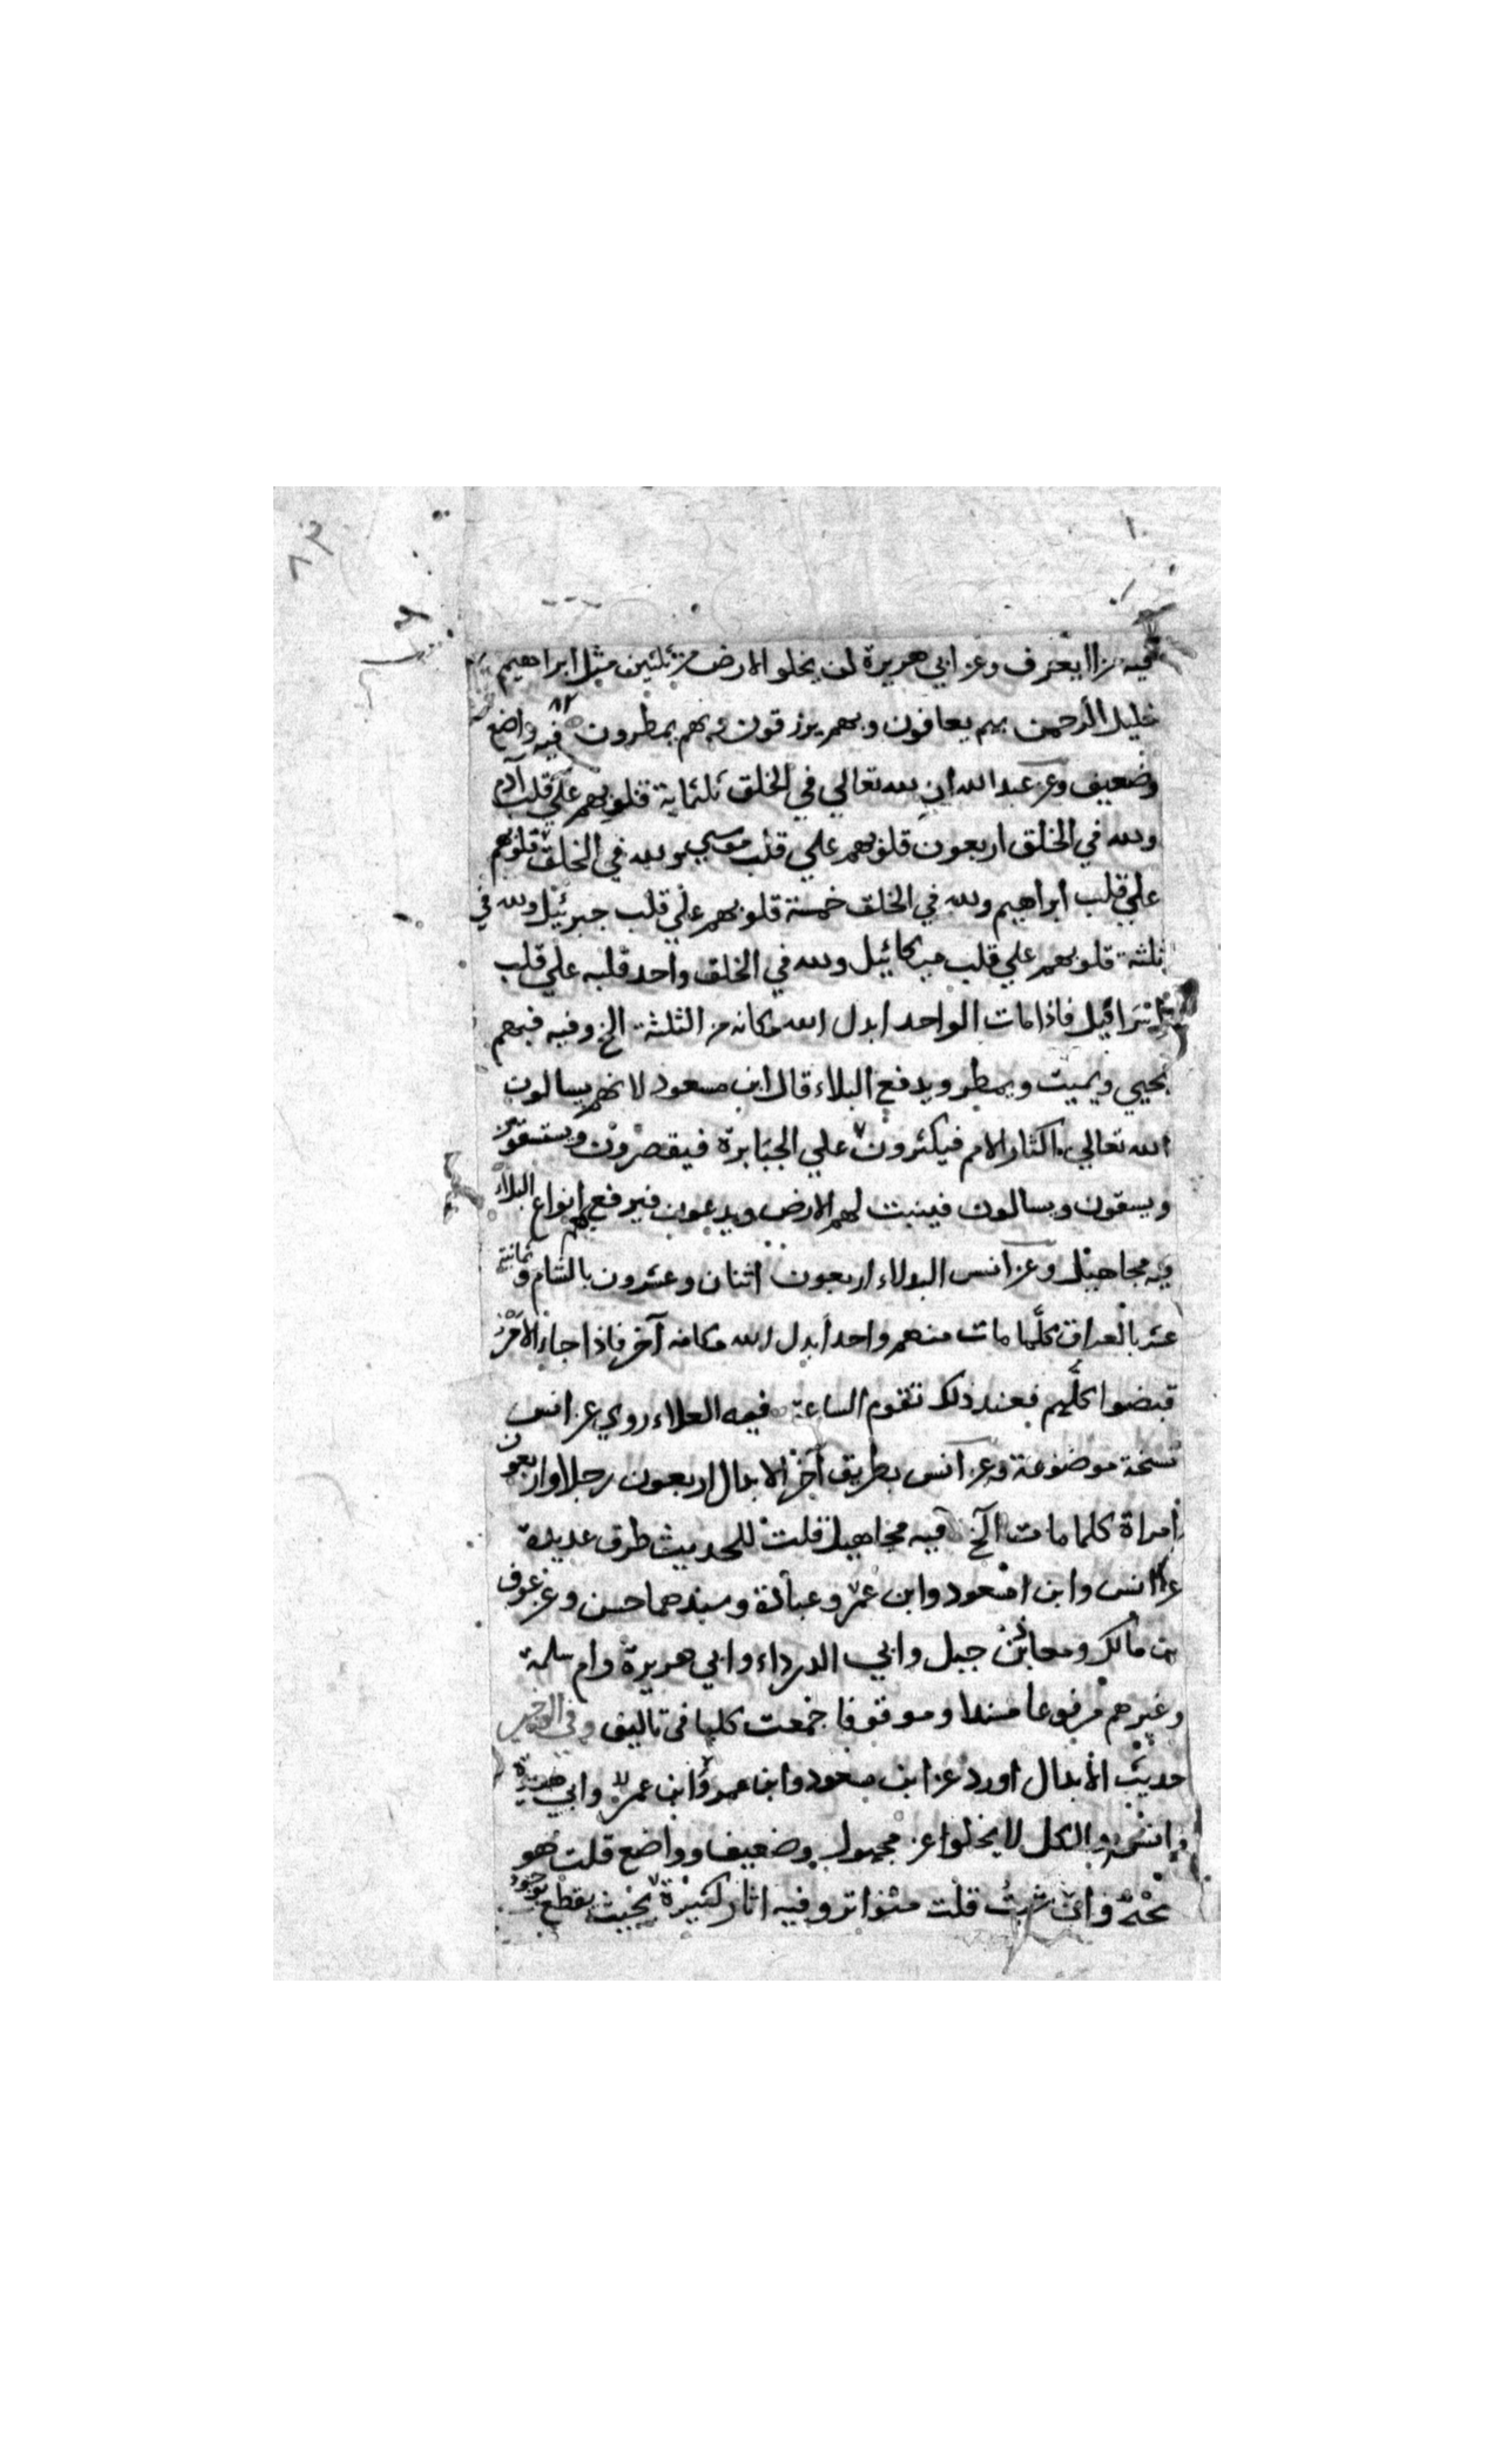 ٨٢
فيه من لا يعرف وعن ابي هريرة لن يخلو الارض من ثلثين مثل ابراهيم
خليل الرحمن بهم يعافون وبهم يرزقون وبهم يمطرون فيه واضع
وضعيف وعن عبد الله ان لله تعالي في الخلق ثلثماية قلوبهم علي قلب آدم
ولله في الخلق اربعون قلوبهم علي قلب موسي ولله في الخلق قلوبهم
علي قلب ابراهيم ولله في الخلق خمسة قلوبهم علي قلب جبرئيل ولله في
ثلثة قلوبهم علي قلب ميكائيل ولله في الخلق واحد قلبه علي قلب
اسرافيل فاذا مات الواحد ابدل الله مكانه من الثلثة الخ وفيه فبهم
يحيي ويميت ويمطر ويدفع البلاء قال ابن مسعود لانهم يسالون
الله تعالي اكثار الامم فيكثرون علي الجبابرة فيقصرون ويستسقون
ويسقون ويسالون فينبت لهم الارض ويدعون فيرفع بهم انواع البلاء
فيه مجاهيل وعن انس البدلاء اربعون اثنان وعشرون بالشام وثمانية
عشر بالعراق كلما مات منهم واحد ابدل الله مكانه آخر فاذا جاء الامر
قبضوا كلهم فعند ذلك تقوم الساعة فيه العلاء روي عن انس
نسخة موضوعة وعن انس بطريق آخر الابدال اربعون رجلا واربعون
امراة كلما مات الخ فيه مجاهيل قلت للحديث طرق عديدة
عن انس وابن مسعود وابن عمر وعبادة وسندهما حسن وعن عوف
بن مالك ومعاذ بن جبل وابي الدرداء وابي هريرة وام سلمة
وغيرهم مرفوعا مسندا وموقوفا جمعت كلها في تاليف وفي الوجيز
حديث الابدال اورد عن ابن مسعود وابن عمر وابن عمر وابي هريرة
وانس والكل لا يخلوا عن مجهول وضعيف وواضع قلت هو
صحيح وان شئت قلت متواتر وفيه اثار كثيرة بحيث يقطع بوجود